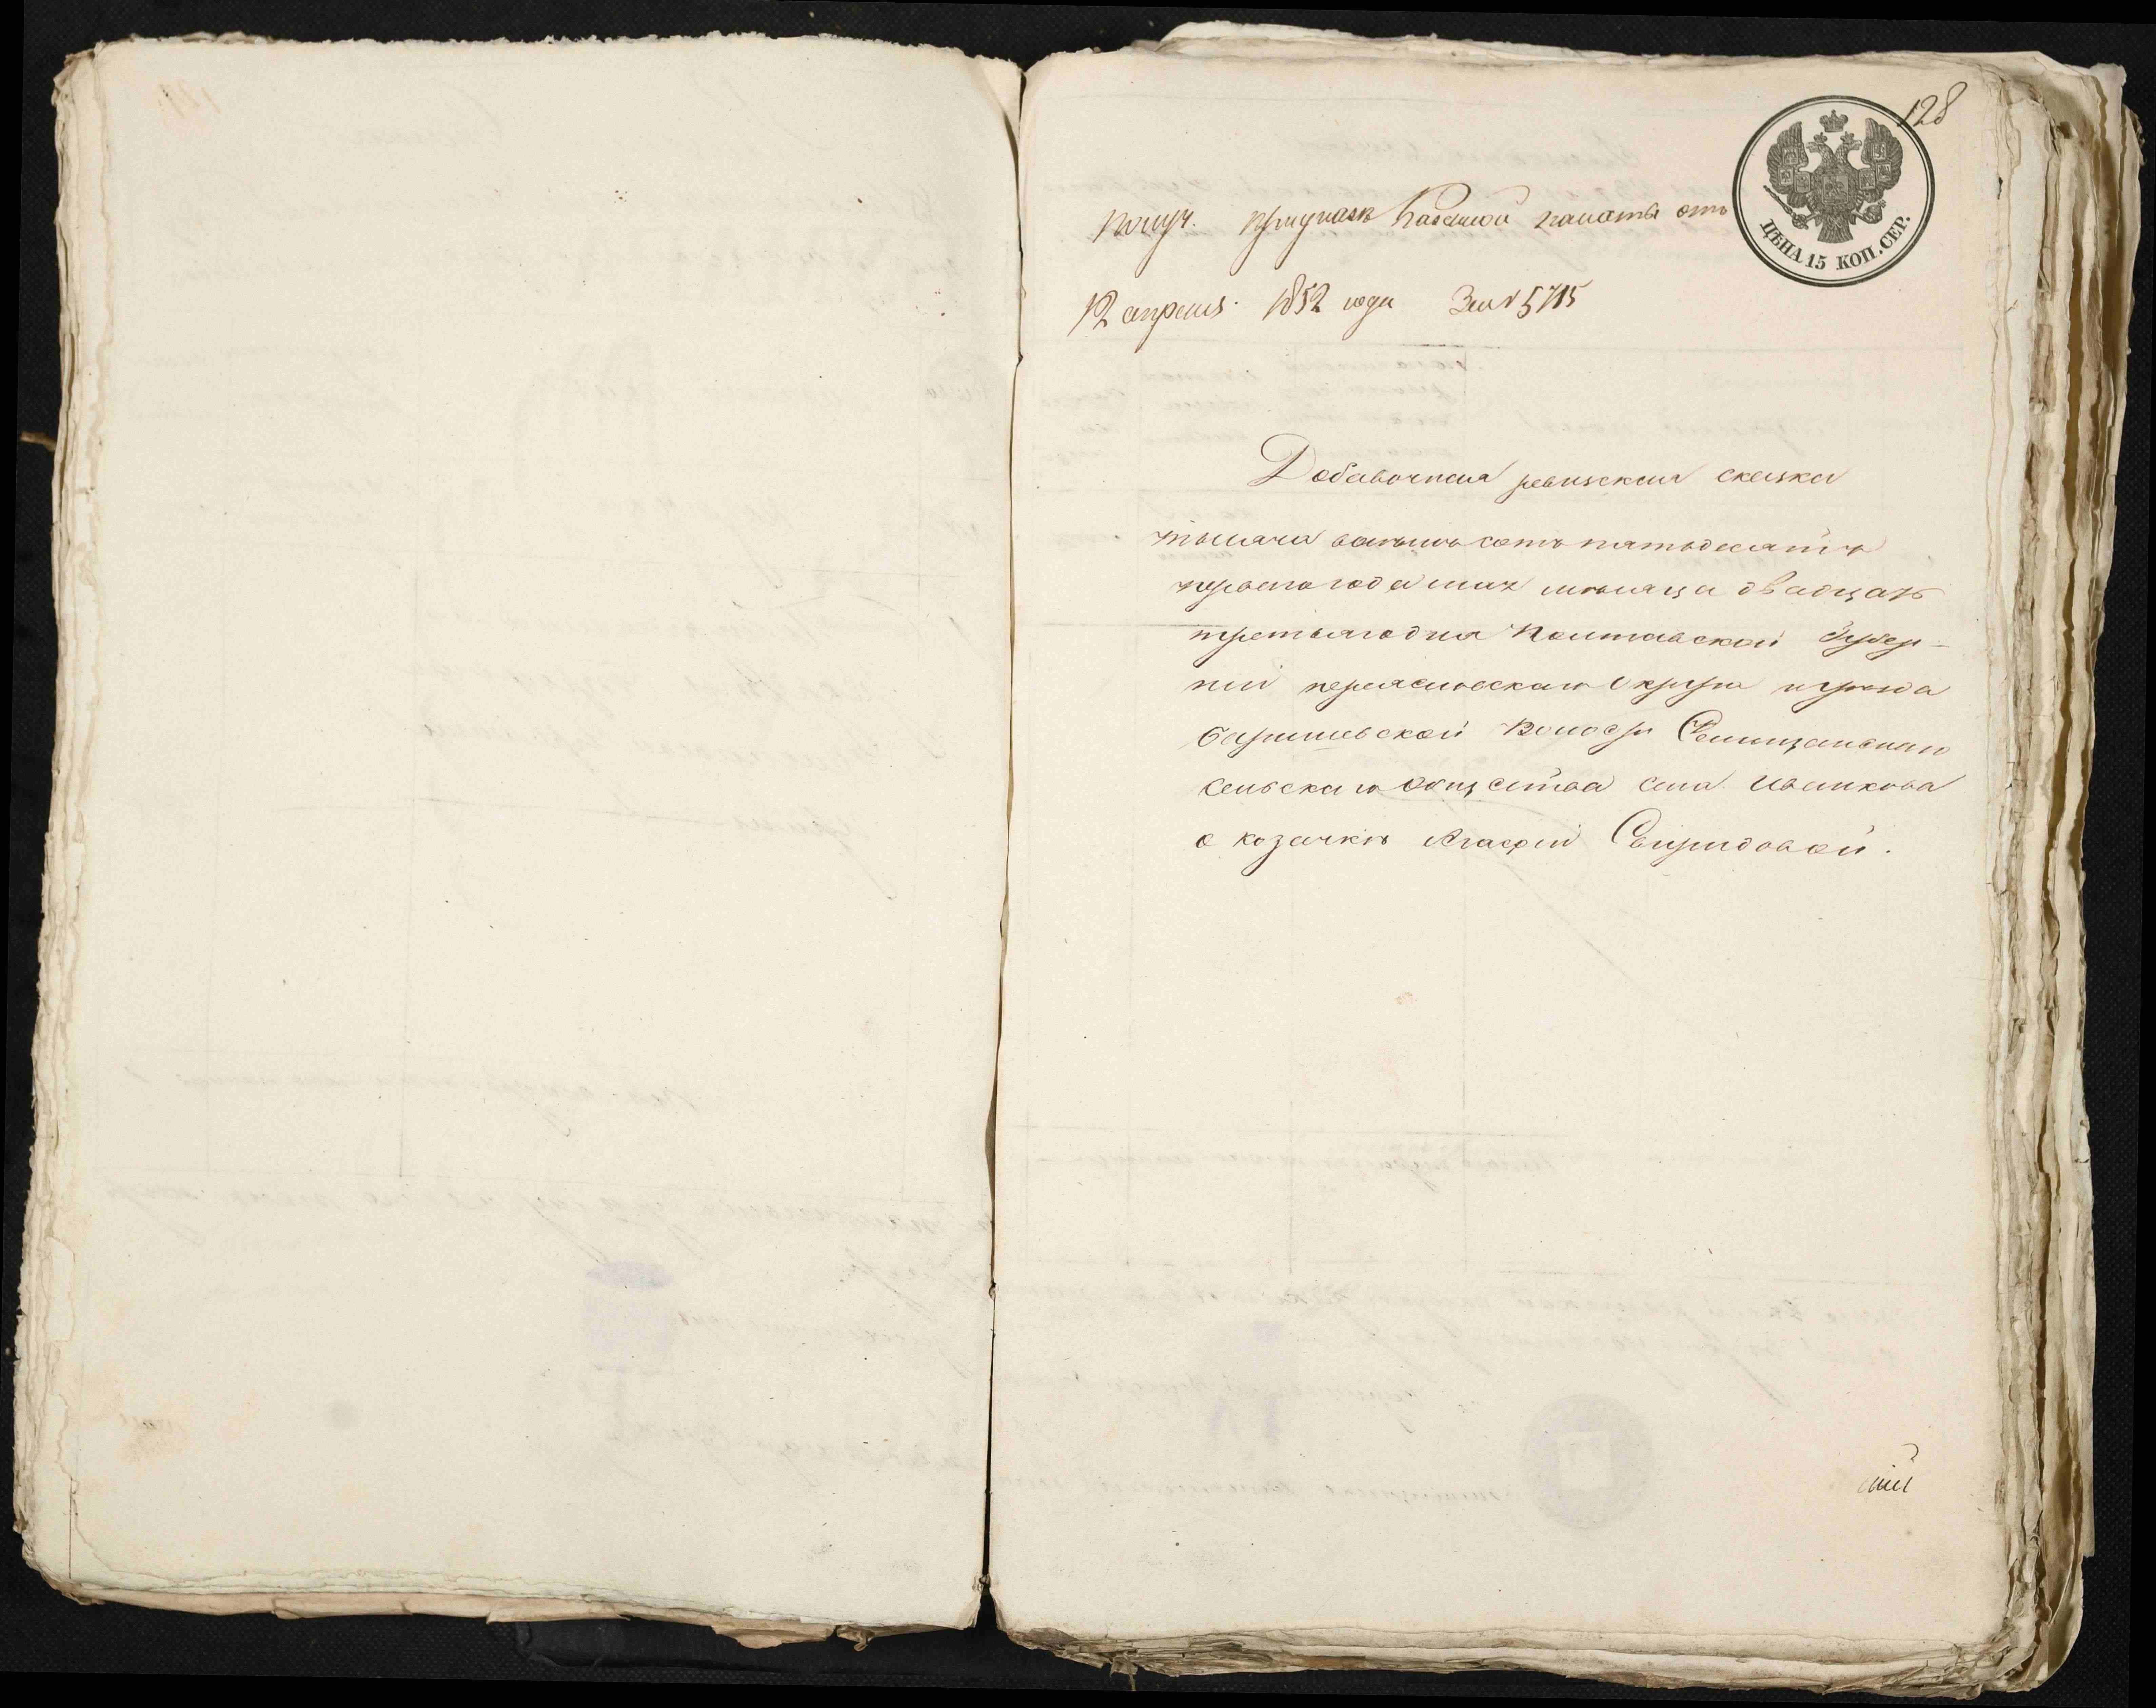 128
ЦѢНА 15 КОП. СЕР.
получ. при указѣ Казенной палаты отъ
12 апреля 1852 года За № 5715
Добавочная ревизская сказка
тысяча восемь сотъ пятьдесятъ
перваго года мая мѣсяца двадцать
третьяго дня Полтавской Губер-
ніи переяславскаго Округа и уезда
барышевской Волости Селищанскаго
сельскаго общества села Иванкова
о козачкѣ Агафіи Свиридовой.